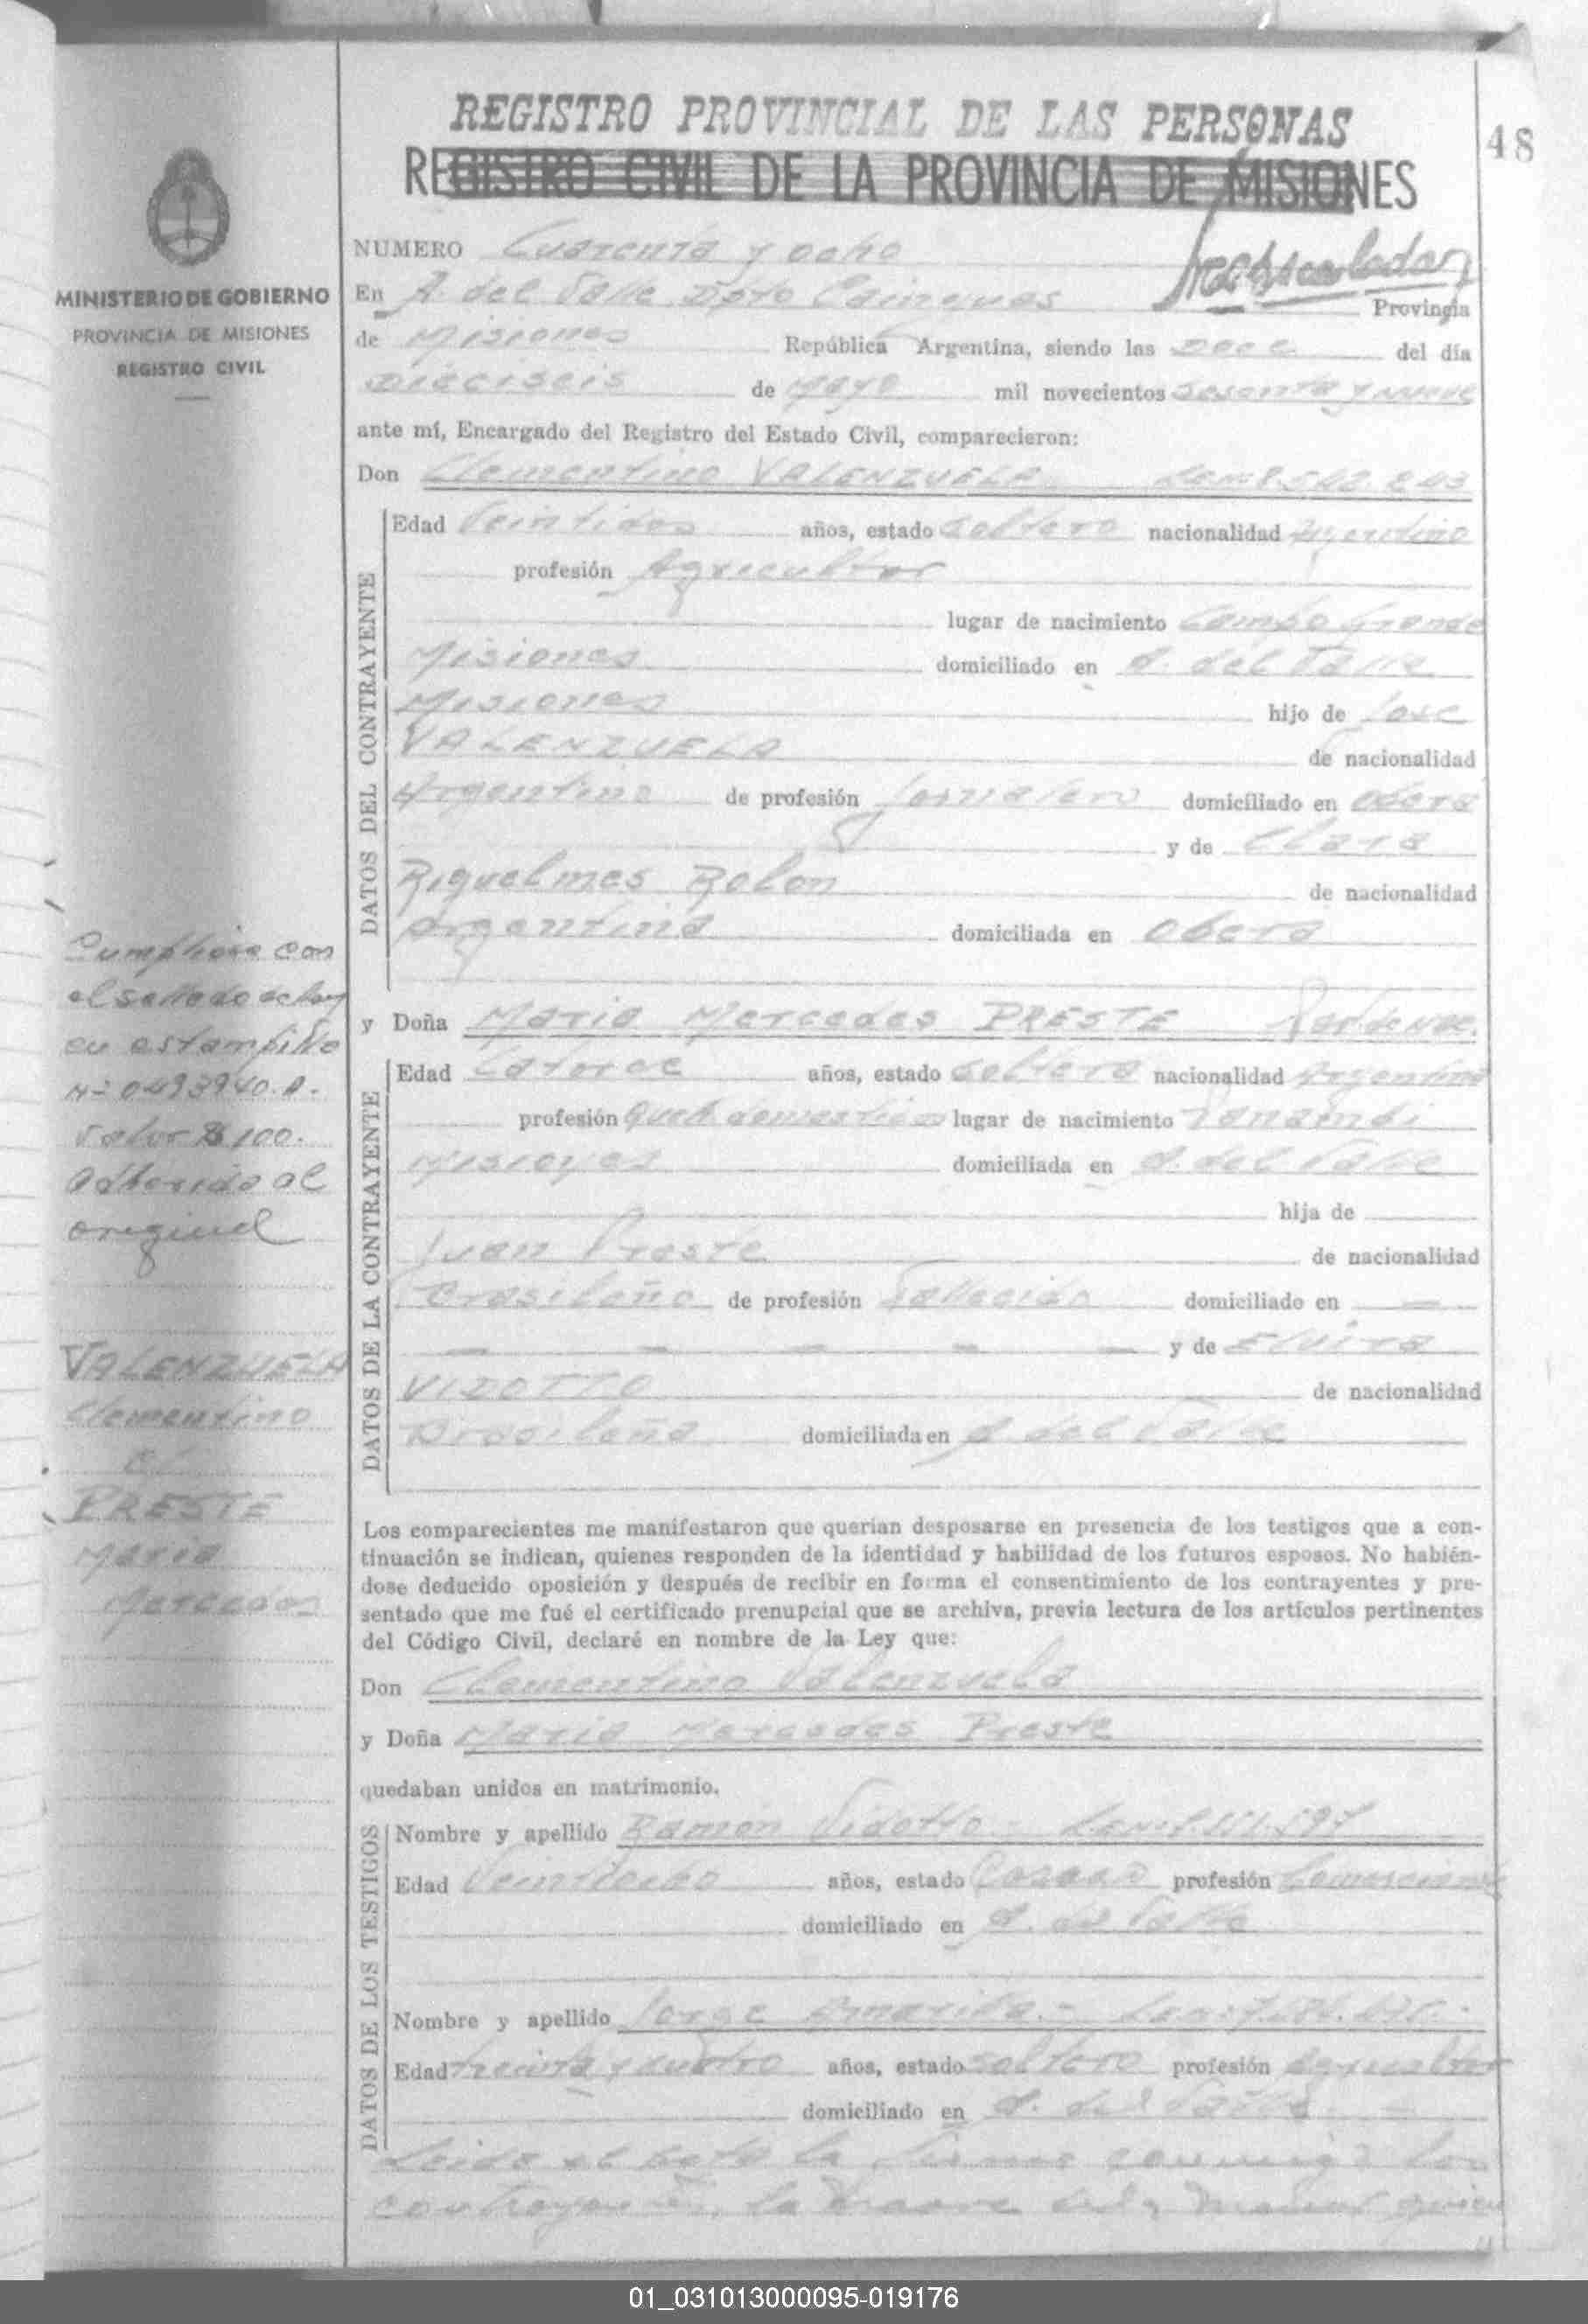 REGISTRO PROVINCIAL DE LAS PERSONAS
REGISTRO CIVIL DE LA PROVINCIA DE MISIONES
48
MINISTERIO DE GOBIERNO
PROVINCIA DE MISIONES
REGISTRO CIVIL
NUMERO Cuarenta y ocho
En A. del Valle Dpto Cainguas Provincia
de Misiones República Argentina, siendo las doce del día
Dieciseis de Mayo mil novecientos sesenta y nueve
ante mí, Encargado del Registro del Estado Civil, comparecieron:
Don Clementino VALENZUELA
DATOS DEL CONTRAYENTE
Edad Veintidos años, estado soltero nacionalidad Argentino
profesión Agricultor
lugar de nacimiento Campo Grande
Misiones domiciliado en A. del Valle
Misiones hijo de Jose
VALENZUELA de nacionalidad
Argentino de profesión Jornalero domiciliado en Obera
y de Clara
Riquelmes Bolon de nacionalidad
Argentina domiciliada en Obera
y Doña Maria Mercedes PRESTE
DATOS DE LA CONTRAYENTE
Edad Catorce años, estado soltera nacionalidad Argentina
profesión Queh domesticos lugar de nacimiento Panambi
Misiones domiciliada en A. del Valle
hija de
Juan Preste de nacionalidad
Brasileño de profesión Fallecido domiciliado en —
— — — — — y de Elvira
VIDOTTO de nacionalidad
Brasileña domiciliada en A. del Valle
Los comparecientes me manifestaron que querían desposarse en presencia de los testigos que a con-
tinuación se indican, quienes responden de la identidad y habilidad de los futuros esposos. No habién-
dose deducido oposición y después de recibir en forma el consentimiento de los contrayentes y pre-
sentado que me fué el certificado prenupcial que se archiva, previa lectura de los artículos pertinentes
del Código Civil, declaré en nombre de la Ley que:
Don Clementino Valenzuela
y Doña Maria Mercedes Preste
quedaban unidos en matrimonio.
DATOS DE LOS TESTIGOS
Nombre y apellido Ramón Vidotto
Edad Veintiocho años, estado Casado profesión Comerciante
domiciliado en A. del Valle
Nombre y apellido Jorge
Edad treinta y cuatro años, estado soltero profesión Agricultor
domiciliado en A. del Valle
Leida el acta la firman conmigo los
contrayentes, la madre del
Cumpliose con
el sellado de ley
en estampilla
Nº 0493940.A.
Valor $ 100.
Adherido al
original
VALENZUELA
Clementino
c/
PRESTE
Maria
Mercedes
01_031013000095-019176